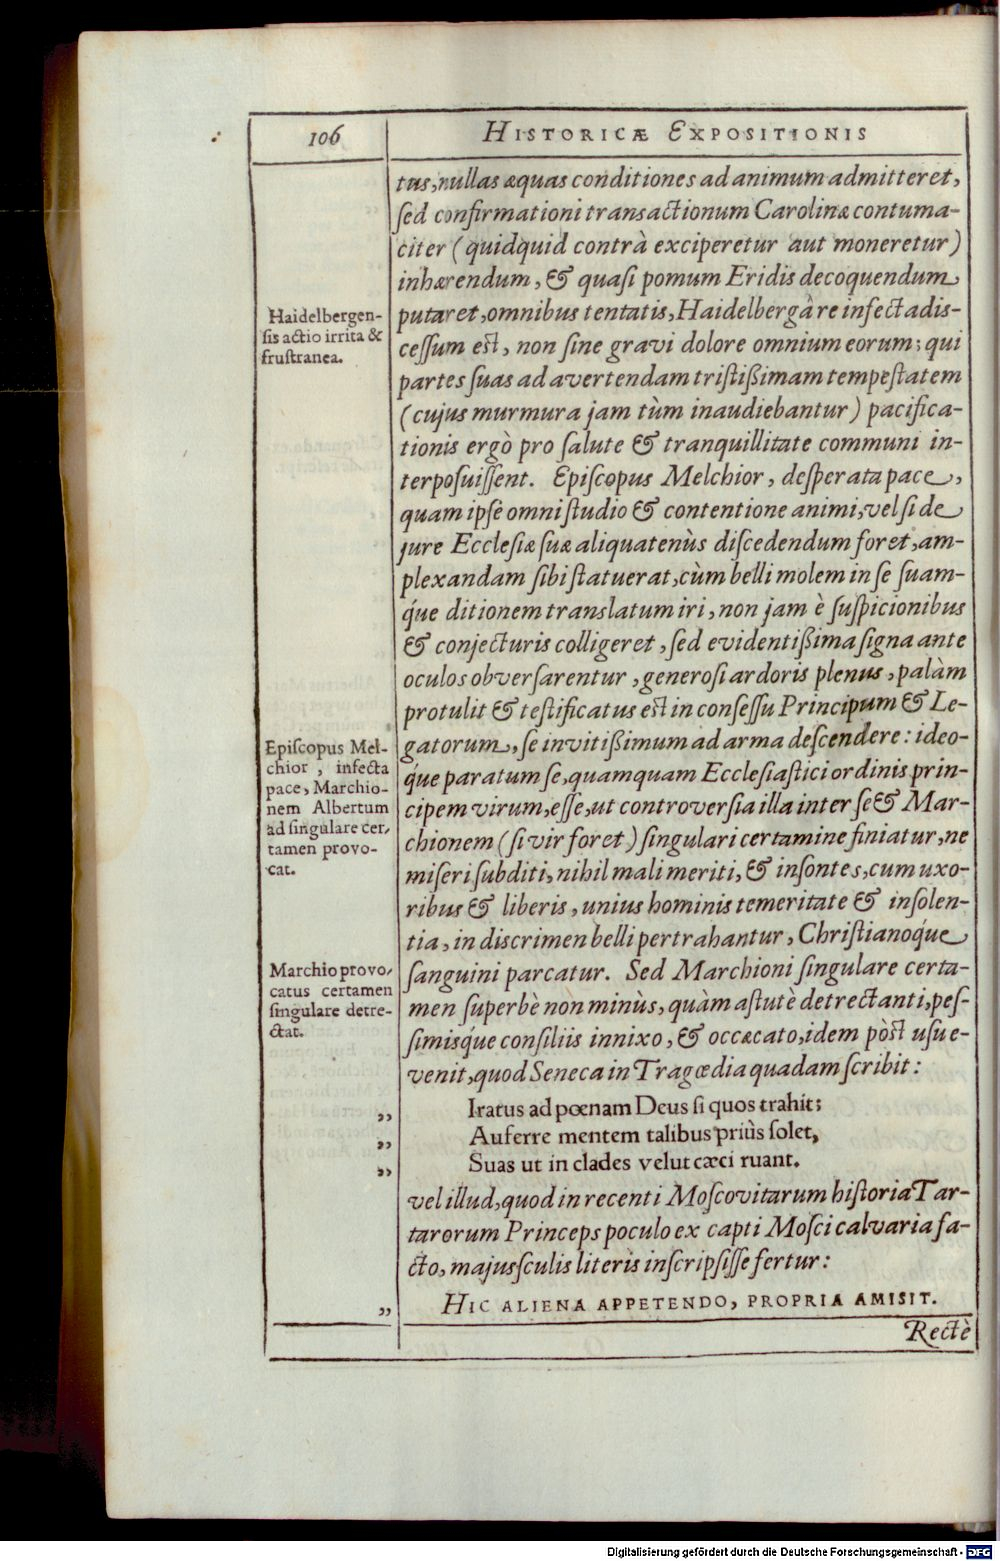 106
HISTORICÆ EXPOSITIONIS
tus, nullas æquas conditiones ad animum admitteret,
ſed confirmationi transactionum Carolinæ contuma-
citer (quidquid contrà exciperetur aut moneretur)
inhærendum, & quaſi pomum Eridis decoquendum
putaret, omnibus tentatis, Haidelbergâ re infecta dis-
ceſſum eſt, non ſine gravi dolore omnium eorum; qui
partes ſuas ad avertendam triſtißimam tempeſtatem
(cujus murmura jam tùm inaudiebantur) pacifica-
tionis ergò pro ſalute & tranquillitate communi in-
terpoſuiſſent. Epiſcopus Melchior, deſperata pace,
quam ipſe omni ſtudio & contentione animi, vel ſi de
jure Eccleſiæ ſuæ aliquatenùs diſcedendum foret, am-
plexandam ſibi ſtatuerat, cùm belli molem in ſe ſuam-
q́ue ditionem translatum iri, non jam è ſuſpicionibus
& conjecturis colligeret, ſed evidentißima ſigna ante
oculos obverſarentur, generoſi ardoris plenus, palàm
protulit & teſtificatus eſt in conſeſſu Principum & Le-
gatorum, ſe invitißimum ad arma deſcendere: ideo-
q́ue paratum ſe, quamquam Eccleſiaſtici ordinis prin-
cipem virum, eſſe, ut controverſia illa inter ſe & Mar-
chionem (ſi vir foret) ſingulari certamine finiatur, ne
miſeri ſubditi, nihil mali meriti, & inſontes, cum uxo-
ribus & liberis, unius hominis temeritate & inſolen-
tia, in discrimen belli pertrahantur, Chriſtianoq́ue
ſanguini parcatur. Sed Marchioni ſingulare certa-
men ſuperbè non minùs, quàm aſtutè detrectanti, peſ-
ſimisq́ue conſiliis innixo, & occæcato, idem pòſt uſu e-
venit, quod Seneca in Tragœdia quadam ſcribit:
,, Iratus ad pœnam Deus ſi quos trahit;
,, Auferre mentem talibus priùs ſolet,
,, Suas ut in clades velut cæci ruant.
vel illud, quod in recenti Moſcovitarum hiſtoria Tar-
tarorum Princeps poculo ex capti Moſci calvaria fa-
cto, majuſculis literis inſcripſiſſe fertur:
,, HIC ALIENA APPETENDO, PROPRIA AMISIT.
Rectè
Haidelbergen-
ſis actio irrita &
fruſtranea.
Epiſcopus Mel-
chior, infecta
pace, Marchio-
nem Albertum
ad ſingulare cer-
tamen provo-
cat.
Marchio provo-
catus certamen
ſingulare detre-
ctat.
Digitalisierung gefördert durch die Deutsche Forschungsgemeinschaft - DFG